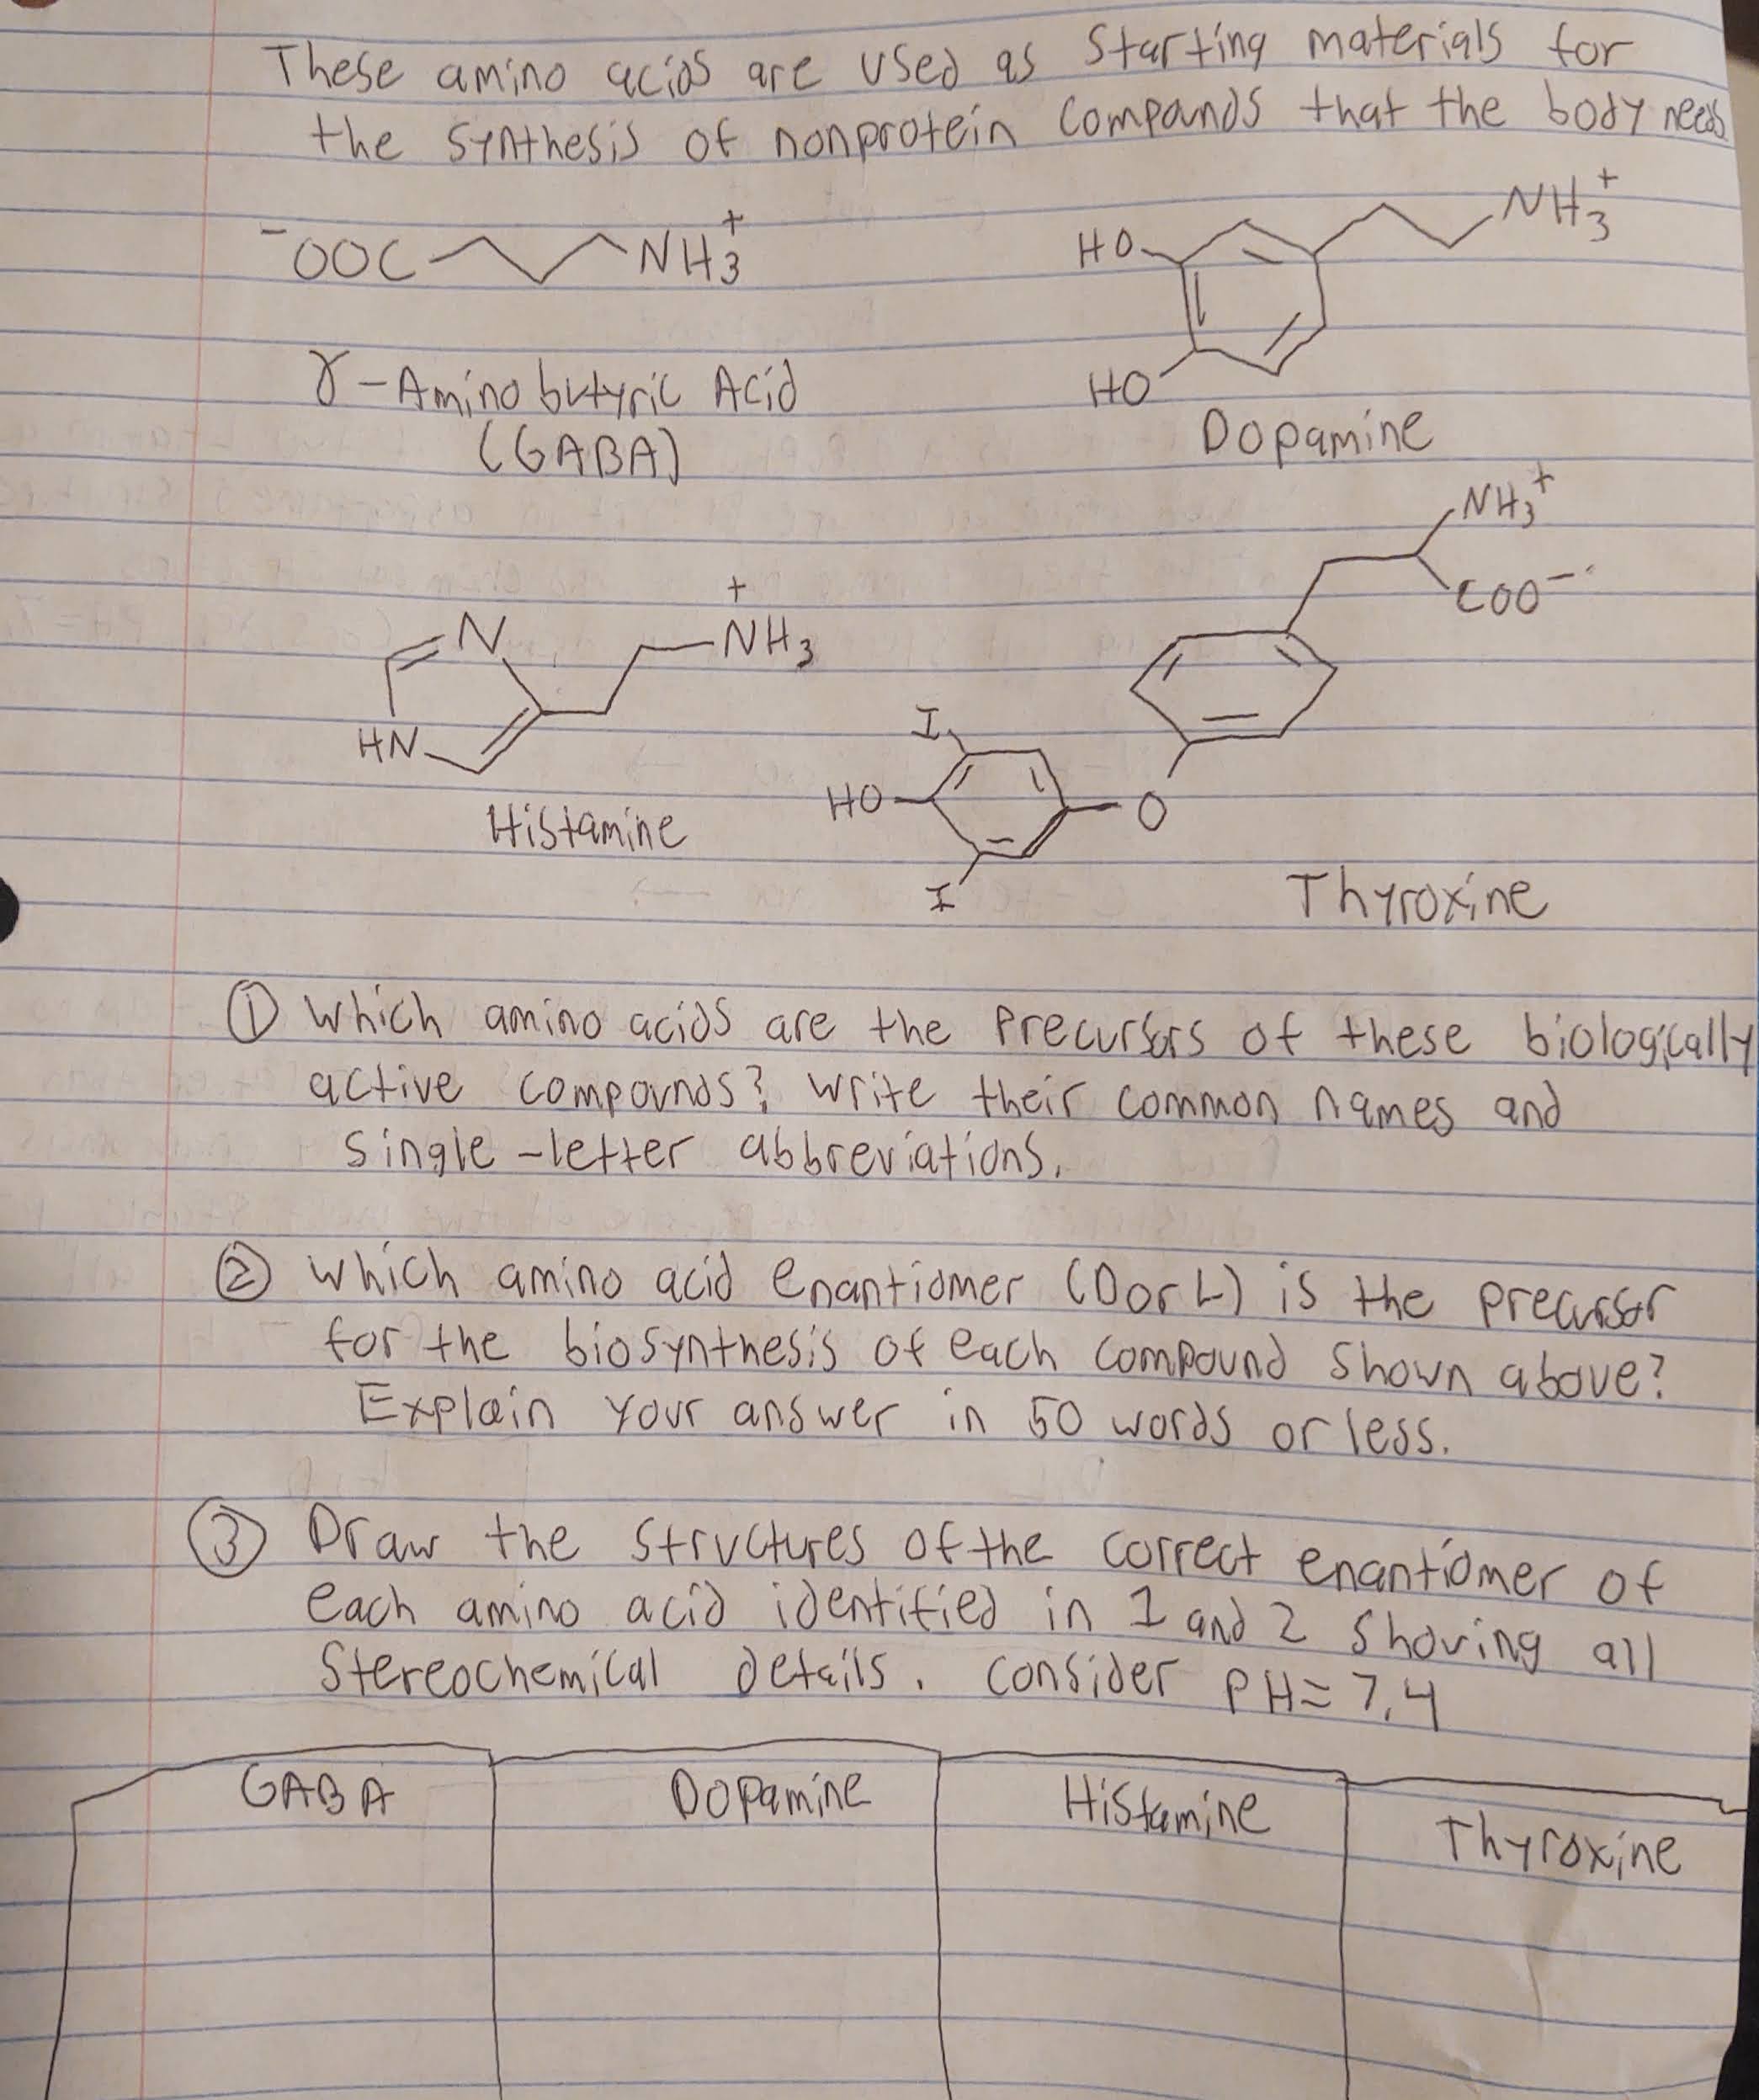 These amino acids are used as starting materials for
the synthesis of nonprotein compands that the body needs
⁻OOC NH₃⁺
γ-Amino butyric Acid
(GABA)
HO NH₃⁺
HO
Dopamine
N NH₃⁺
HN
Histamine
NH₃⁺
COO⁻
I
HO O
I
Thyroxine
① Which amino acids are the precursors of these biologically
active compounds? Write their common names and
single-letter abbreviations.
② Which amino acid enantiomer (D or L) is the precursor
for the biosynthesis of each compound shown above?
Explain your answer in 50 words or less.
③ Draw the structures of the correct enantiomer of
each amino acid identified in 1 and 2 shoving all
stereochemical details. Consider pH = 7.4
GABA Dopamine Histamine Thyroxine